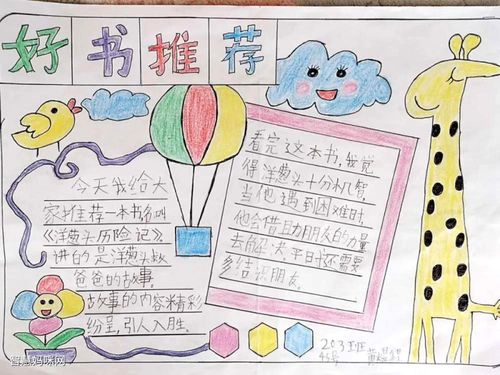 好书推荐
今天我给大
家推荐一本书,名叫
《洋葱头历险记》。
讲的是洋葱头救
爸爸的故事。
故事的内容精彩
纷呈,引人入胜。
看完这本书,我觉
得洋葱头十分机智,
当他遇到困难时,
他会借助朋友的力量
去解决。平时还需要
多结识朋友。
203班
45号
智慧妈咪网